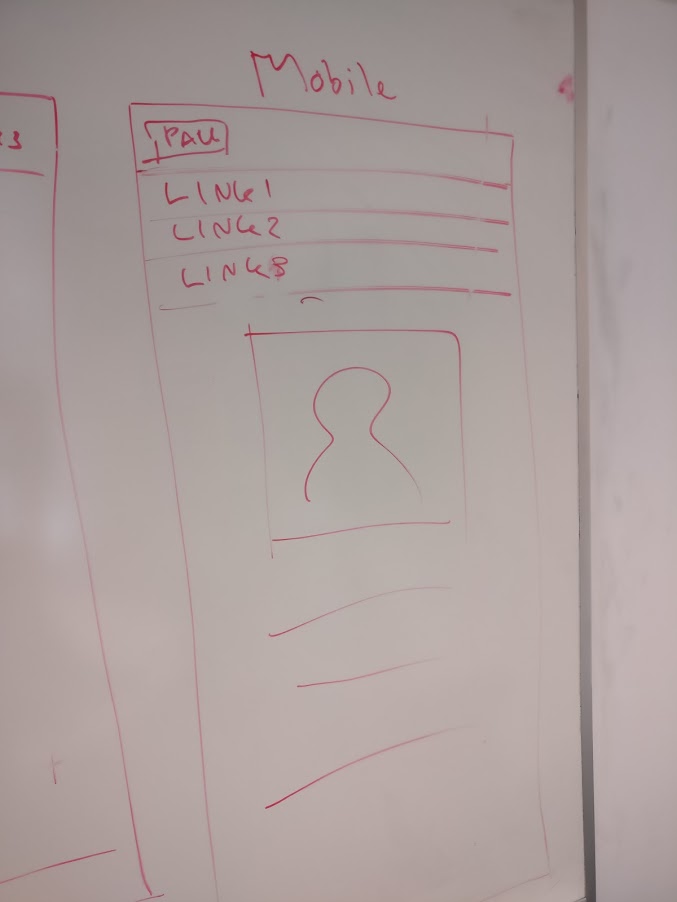 Mobile
PAU
LINK1
LINK2
LINK3